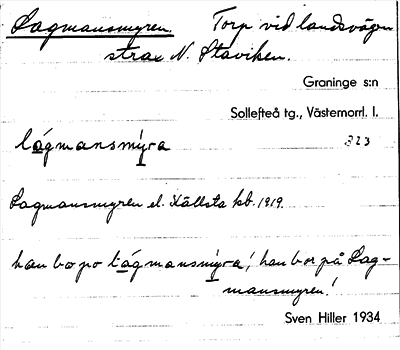 Lagmansmyren. Torp vid landsvägen
strax N. Staviken.
Graninge s:n
Sollefteå tg., Västernorrl. l.
lágmansmýra 323
Lagmansmyren el. Källsta kb. 1919.
han bo po lágmansmýra! han bor på Lag-
mansmyren!
Sven Hiller 1934